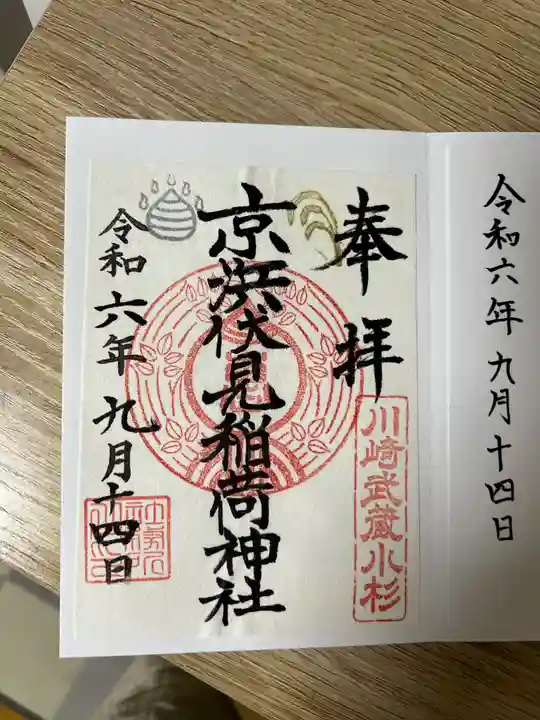 令和六年九月十四日
奉拝
川崎武蔵小杉
京浜伏見稲荷神社
令和六年九月十四日